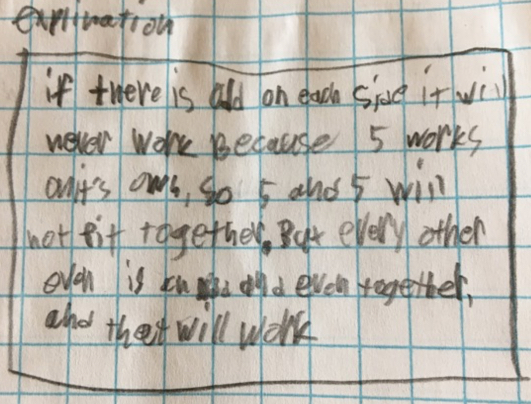 explination
if there is odd on each side it will
never work because 5 works
on it's own, so 5 and 5 will
not fit together. But every other
even is an odd and even together,
and that will work